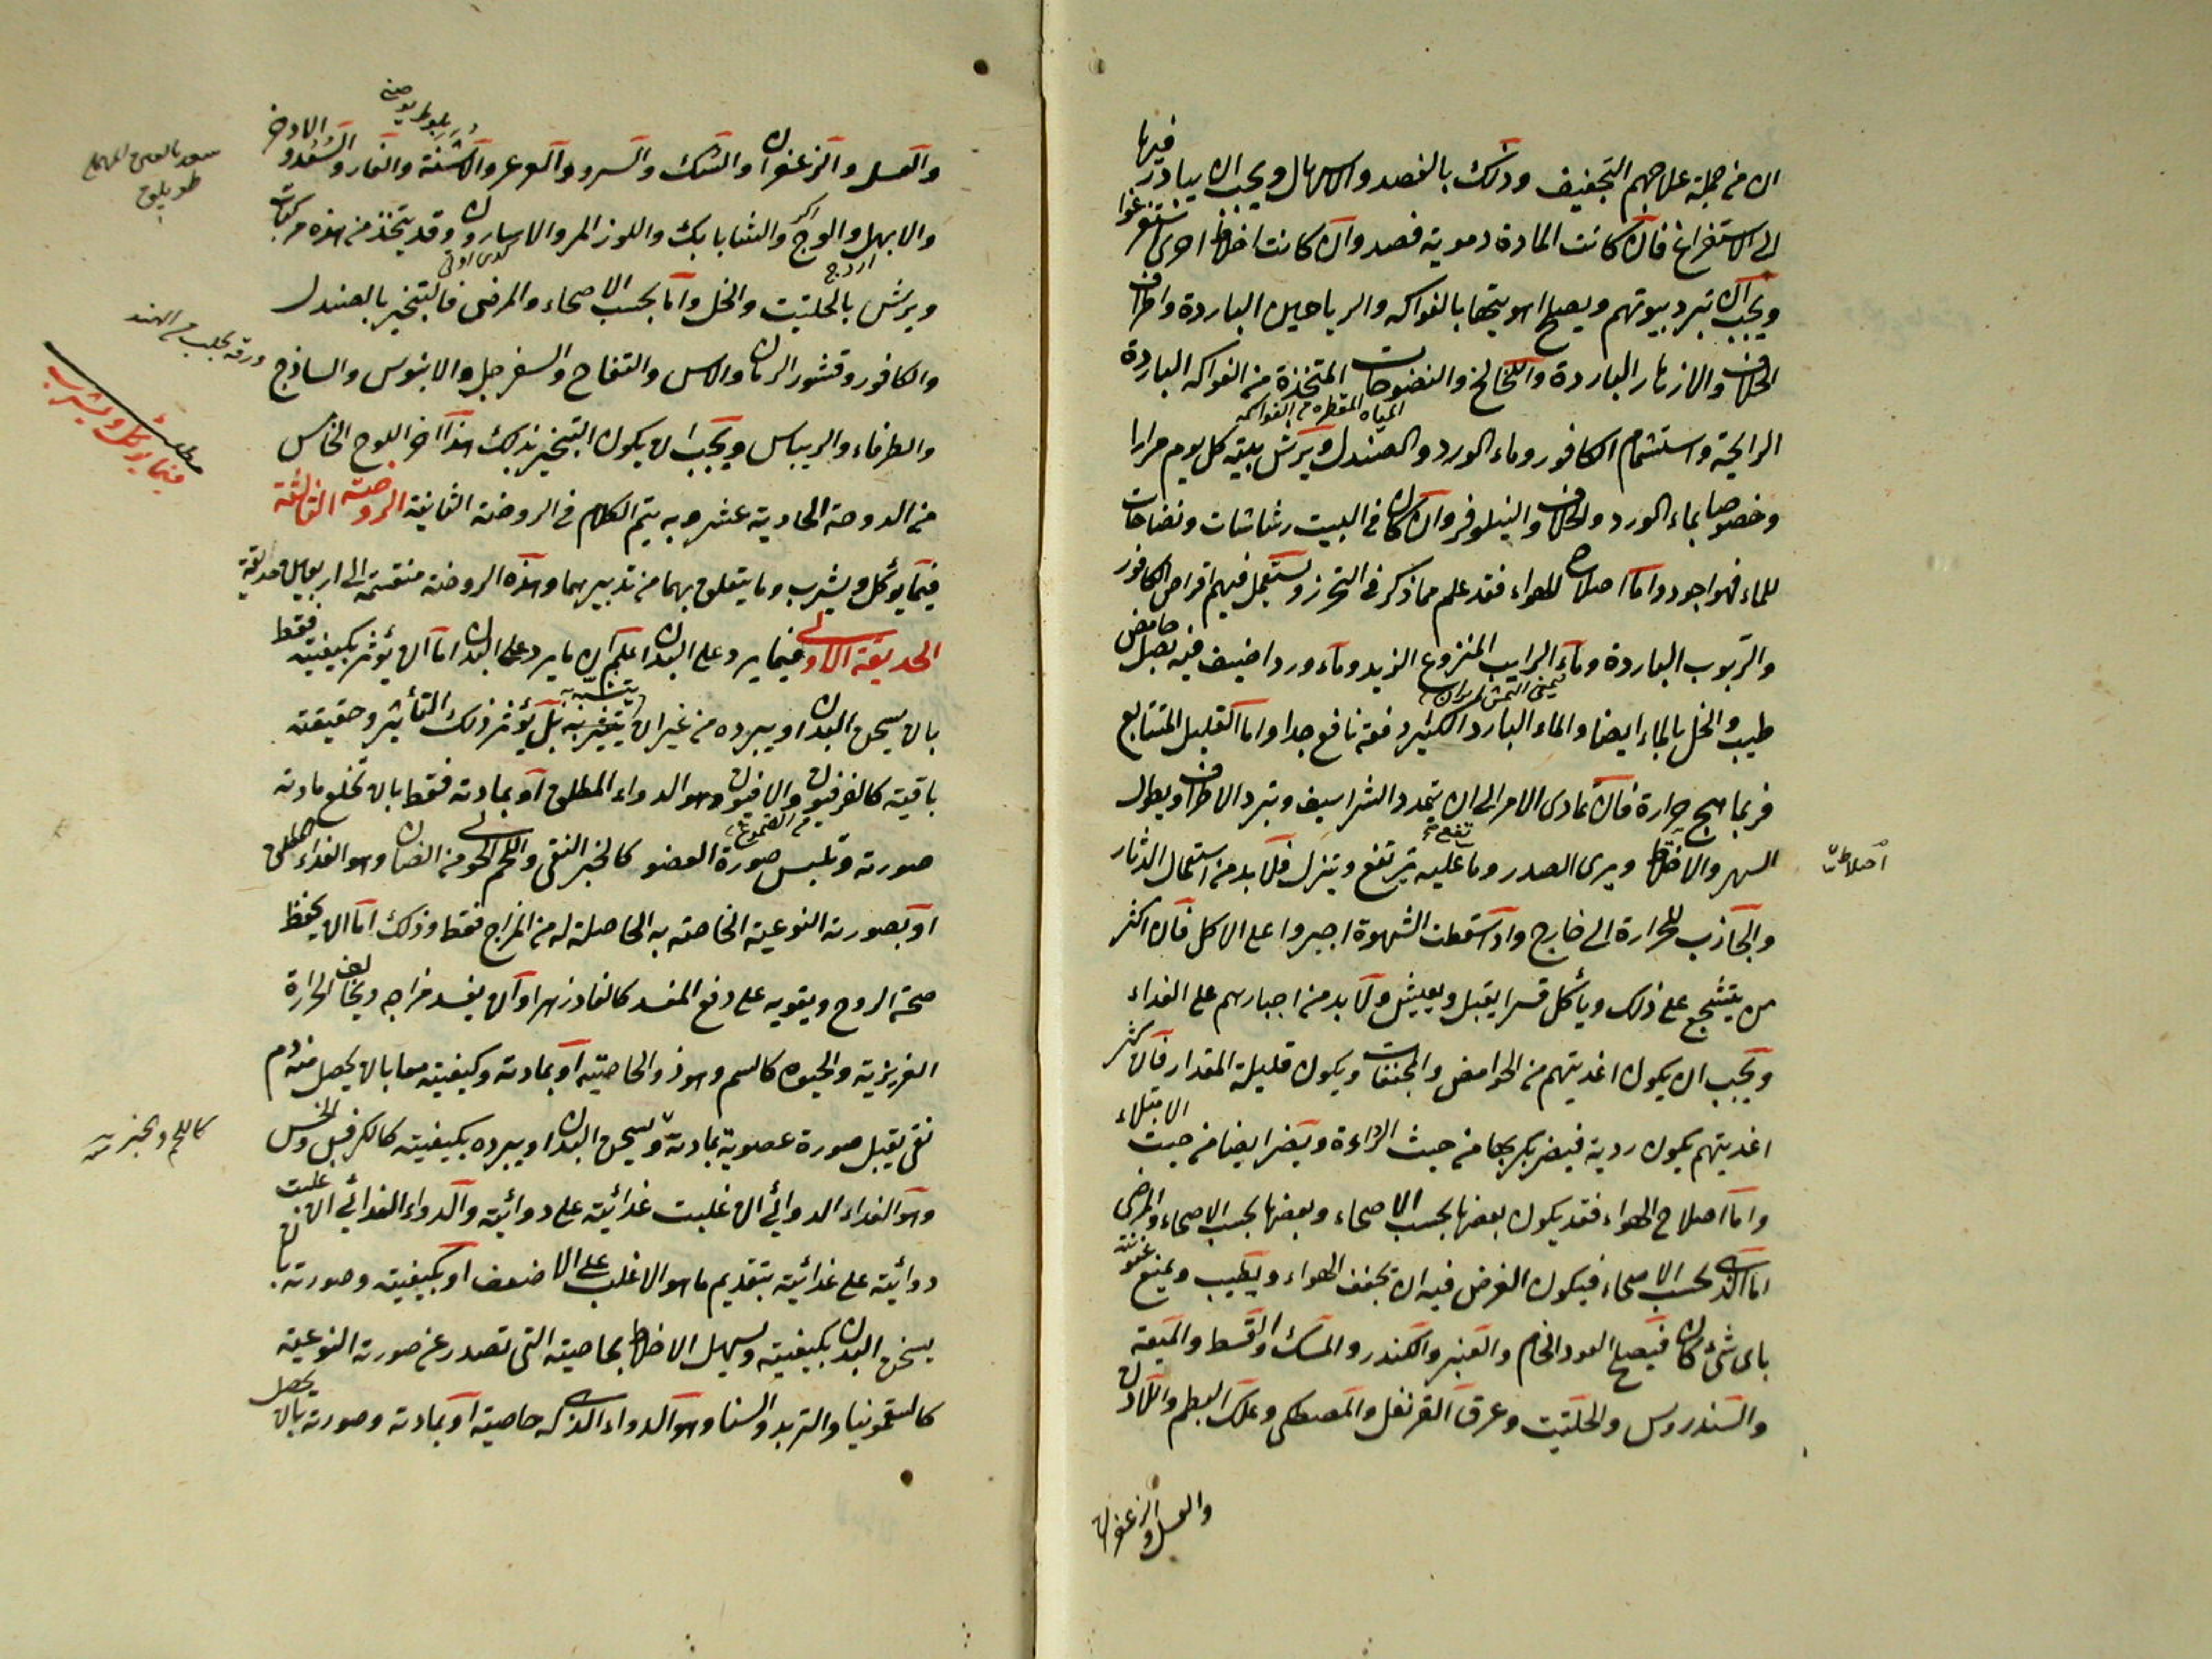 ان من جملة علاجهم التجفيف وذلك بالفصد والاسهال ويجب ان يبادر فيها
الى الاستفراغ فان كانت المادة دموية فصد وان كانت اخلاط اخرى استفرغوا
ويجب ان تبرد بيوتهم ويصلح اهويتها بالفواكه والرياحين الباردة واطراف
الخلاف والازهار الباردة واللخالخ والنضوحات المتخذة من الفواكه الباردة
المياه المقطره من الفواكه
الرايحة واستشمام الكافور وماء الورد والصندل ويرش بيته كل يوم مرارا
وخصوصا بماء الورد والخلاف والنيلوفر وان كان في البيت رشاشات ونضاحات
للماء فهو اجود واما اصلاح الهواء فقد علم مما ذكر في التحرز ويستعمل فيهم اقراص الكافور
والربوب الباردة وماء الرايب المنزوع الزبد وماء ورد اضيف فيه بصل حامض
طيب والخل بالماء ايضا والماء البارد الكثير دفعة نافع جدا واما القليل المتتابع
فربما هيج حرارة فان تمادى الامر الى ان يتمدد الشراسيف وتبرد الاطراف ويطول
السهر والاختلاط ويرى الصدر وما عليه يرتفع وينزل فلا بد من استعمال الدثار
والجاذب للحرارة الى خارج واذا سقطت الشهوة اجبروا على الاكل فان اكثر
من يتشجع على ذلك وياكل قسرا يقبل ويعيش ولا بد من اجبارهم على الغذاء
ويجب ان يكون اغديتهم من الحوامض والمجففات ويكون قليلة المقدار فان كثر
اغديتهم يكون ردية فيضر بكربها من حيث الرداءة ويضر ايضا من حيث الامتلاء
واما اصلاح الهواء فقد يكون بعضها بحسب الاصحاء وبعضها بحسب الاصحاء والمرضى
اما الذى بحسب الاصحاء فيكون الغرض فيه ان تجفف الهواء ويطيب ويمنع عفونته
باى شئ كان فيصلح العود الخام والعنبر والكندر والمسك والقسط والميعة
والسندروس والحلتيت وعرق القرنفل والمصطكى وعلك البطم واللادن
والعسل والزعفران
والعسل والزعفران والسك والسرو والعرعر والاشنة والغار والسعد والاذخر
والابهل والوج والشابابك واللوز المر والاسارون وقد يتخذ من هذه مركبات
ويرش بالحلتيت والخل واما بحسب الاصحاء والمرضى فالتبخير بالصندل
ورقه يجلب من الهند
والكافور وقشور الرمان والاس والتفاح والسفرجل والابنوس والساذج
والطرفاء والريباس ويجب ان يكون التبخير بذلك هذا اخر اللوح الخامس
فيما يؤكل ويشرب
من الدوحة الحادية عشر وبه يتم الكلام في الروضة الثانية الروضة الثالثة
فيما يؤكل ويشرب وما يتعلق بهما من تدبيرهما وهذه الروضة منقسمة الى اربعين حديقة
الحديقة الاولى فيما يرد على البدن اعلم ان ما يرد على البدن اما ان يؤثر بكيفيته فقط
بان يسخن البدن او يبرده من غير ان يتغير به بل يؤثر ذلك التأثير وحقيقته
باقية كالفرفيون والافيون وهو الدواء المطلق او بمادته فقط بان تخلع مادته
صورته وتلبس صورة العضو كالخبز النقى واللحم الحولى من الضان وهو الغذاء المطلق
او بصورته النوعية الخاصة به الحاصلة له من المزاج فقط وذلك اما ان يحفظ
صحة الروح ويقويه على دفع المفسد كالفادزهر او ان يفسد مزاجه ويخالف الحرارة
الغريزية والحيوة كالسم وهو ذو الخاصية او بمادته وكيفيته معا بان يحصل منه دم
كاللحم والخبز
نقى يقبل صورة عضوية بمادته ويسخن البدن او يبرده بكيفيته كالكرفس والخس
وهو الغذاء الدوائي ان غلبت غذائيته على دوائيته والدواء الغذائي ان غلبت
دوائيته على غذائيته بتقديم ما هو الاغلب على الاضعف او بكيفيته وصورته بان
يسخن البدن بكيفيته ويسهل الاخلاط بخاصيته التي تصدر عن صورته النوعية
كالسقمونيا والتربد والسنا وهو الدواء الذى له خاصية او بمادته وصورته بان يحصل